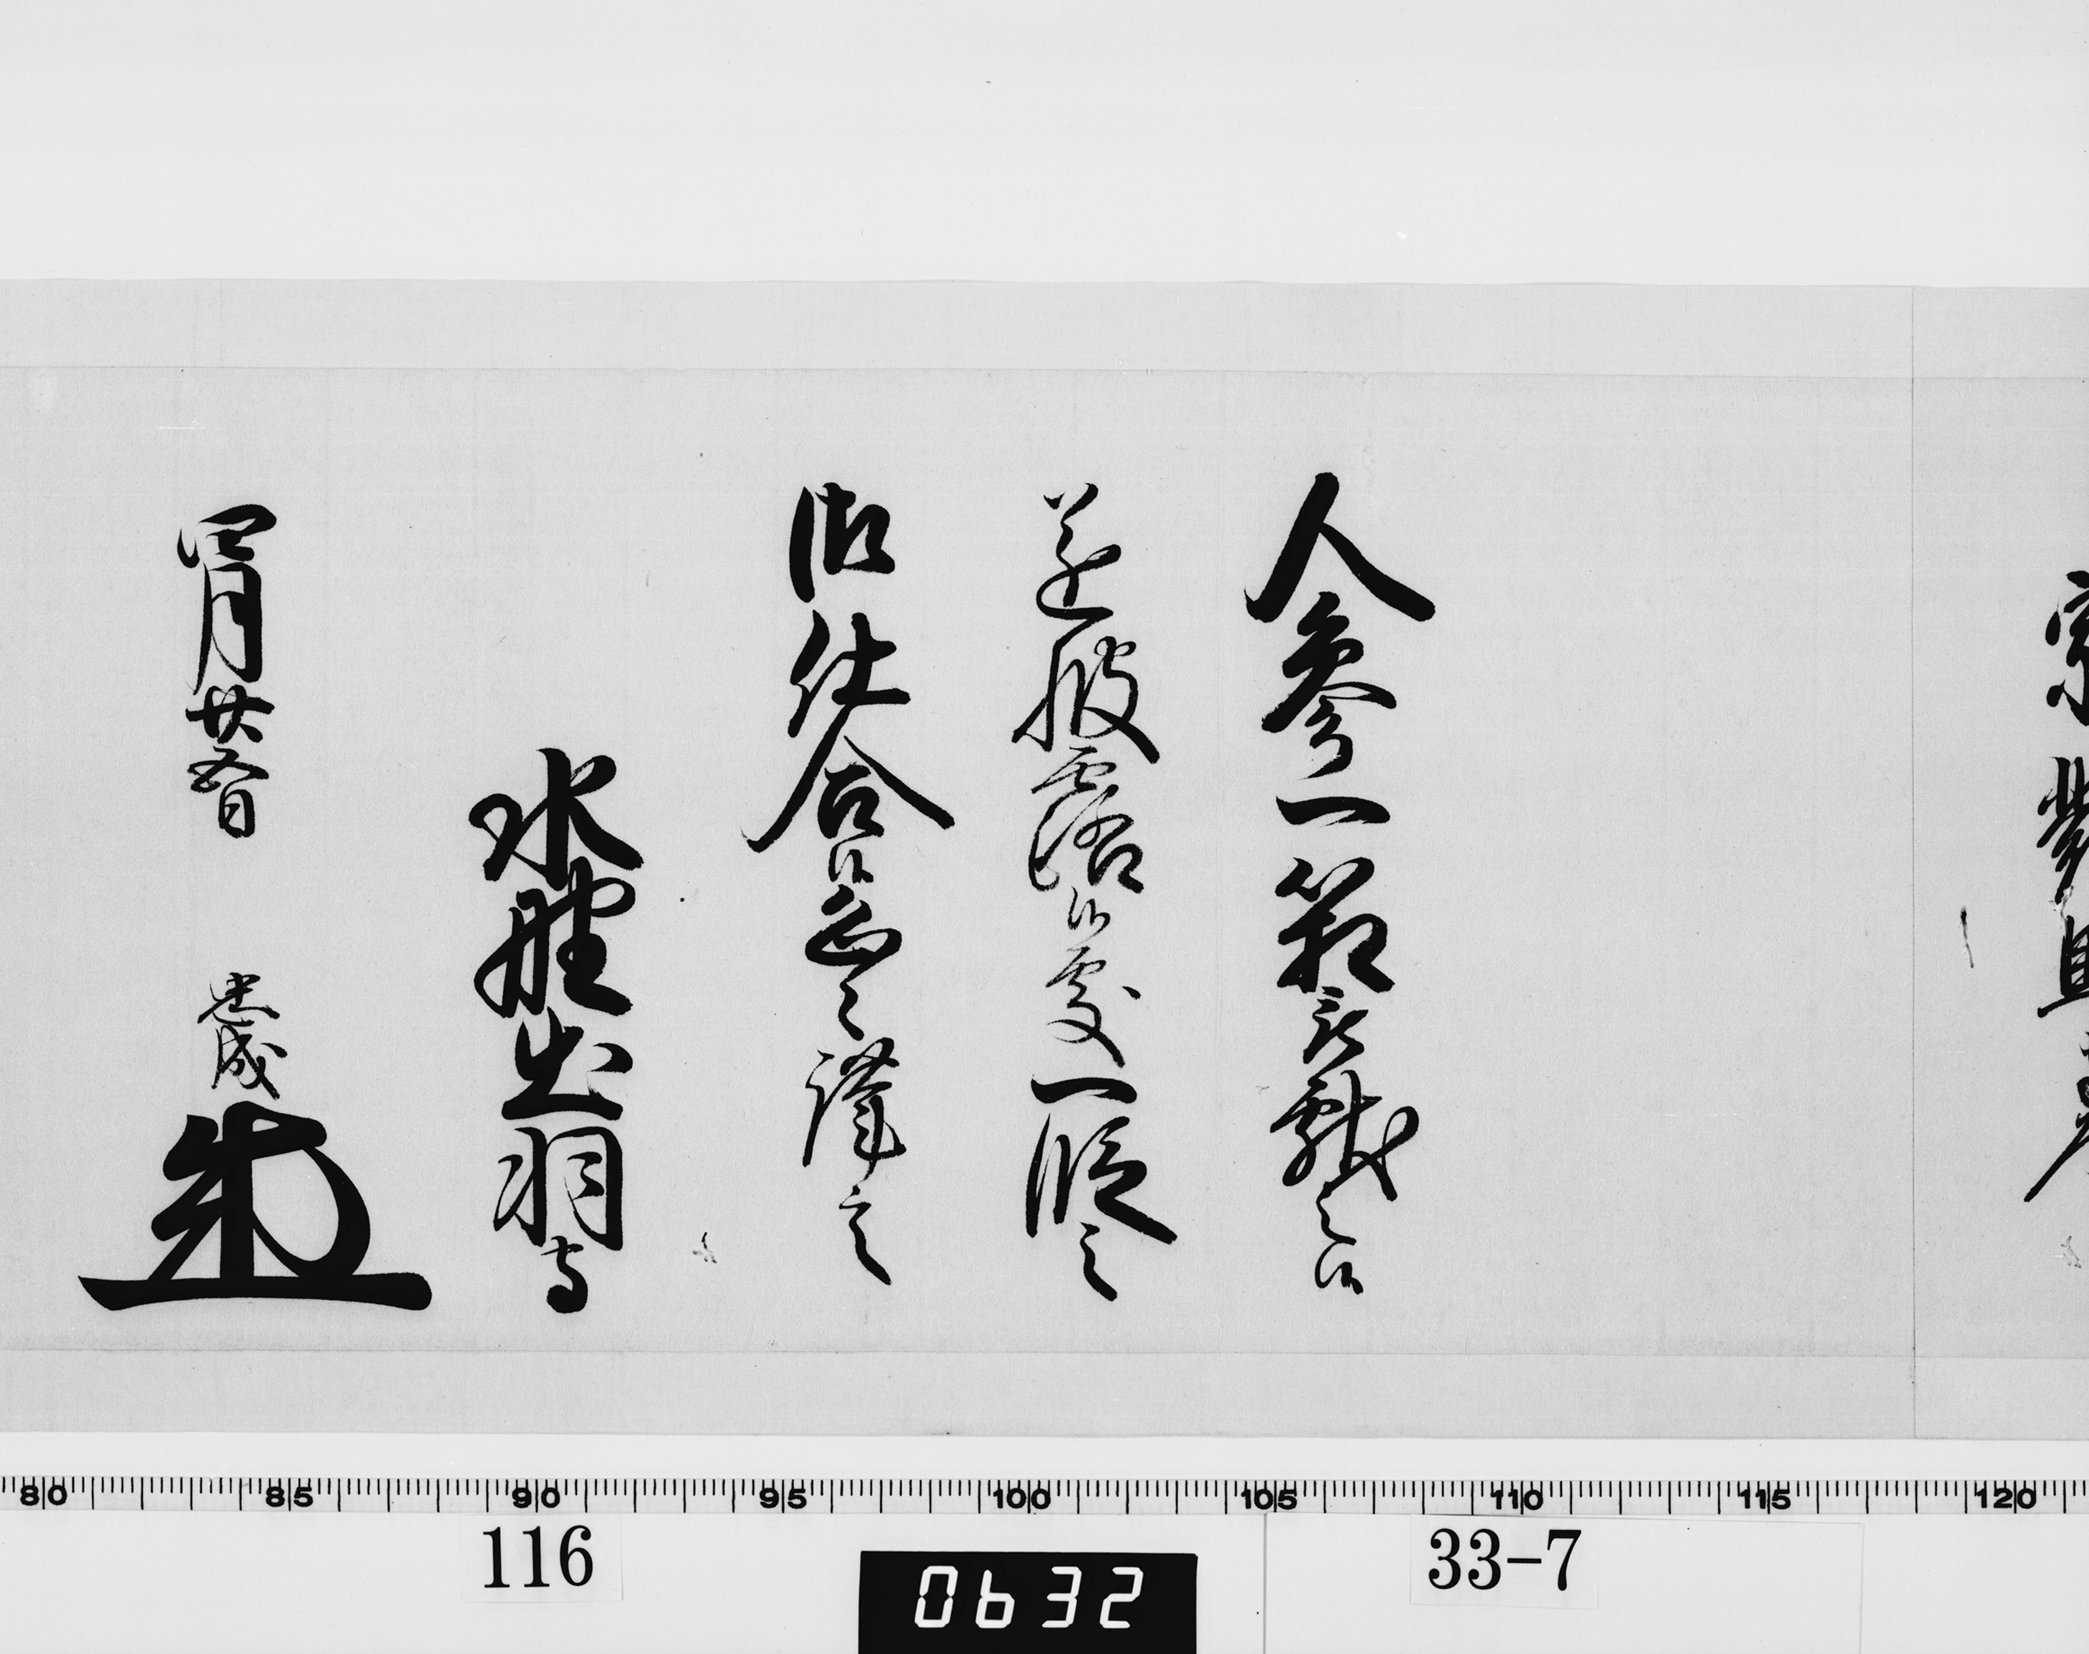 人参一箱被献之候
遂披露候處一段之
御仕合候恐々謹言
水野出羽守
四月廿五日 忠成
宗
80 85 90 95 100 105 110 115 120
116
33-7
0632